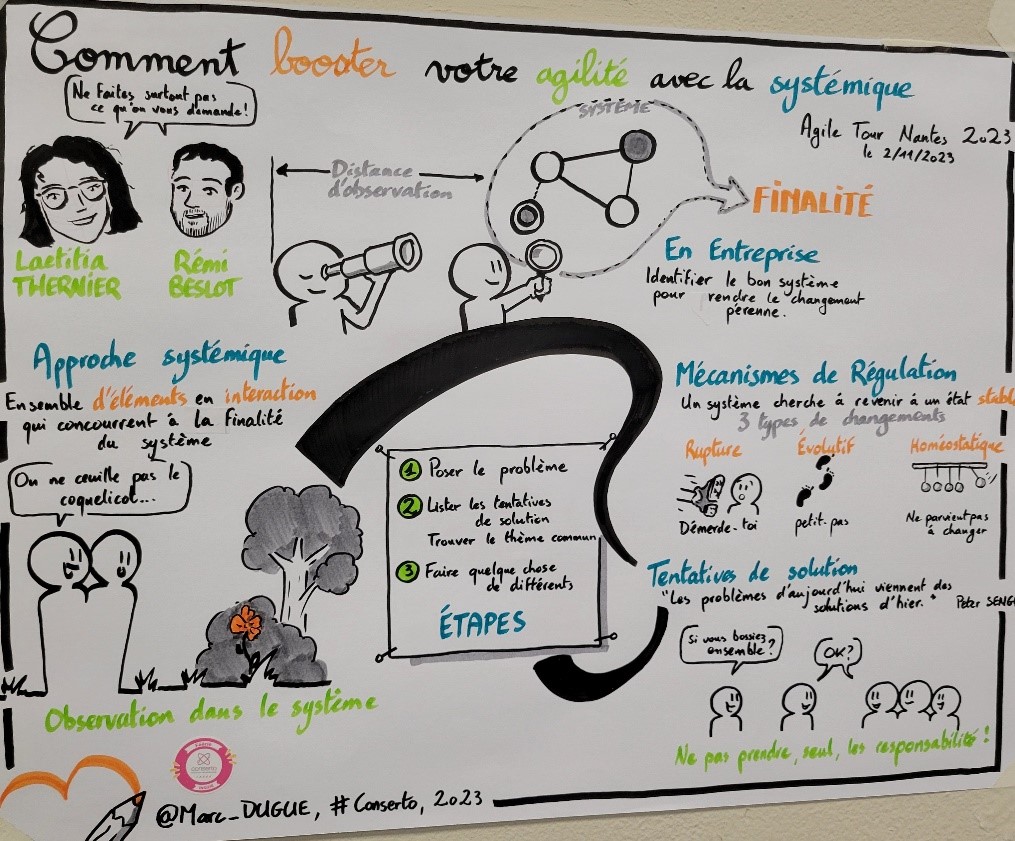 Comment booster votre agilité avec la systémique
Agile Tour Nantes 2023
le 2/11/2023
Ne faites surtout pas
ce qu'on vous demande!
Laetitia
THERNIER
Rémi
BESLOT
Distance
d'observation
SYSTÈME
FINALITÉ
En Entreprise
Identifier le bon système
pour rendre le changement
pérenne.
Approche systémique
Ensemble d'éléments en interaction
qui concourent à la finalité
du système
On ne ceuille pas le
coquelicot...
Observation dans le système
1 Poser le problème
2 Lister les tentatives
de solution
Trouver le thème commun
3 Faire quelque chose
de différents
ÉTAPES
Mécanismes de Régulation
Un système cherche à revenir à un état stable
3 types de changements
Rupture
Démerde-toi
Évolutif
petit-pas
Homéostatique
Ne parvient pas
à changer
Tentatives de solution
"Les problèmes d'aujourd'hui viennent des
solutions d'hier." Peter SENG
Si vous bossiez
ensemble?
OK?
Ne pas prendre, seul, les responsabilité!
conserto
@Marc_DUGUE, #Conserto, 2023